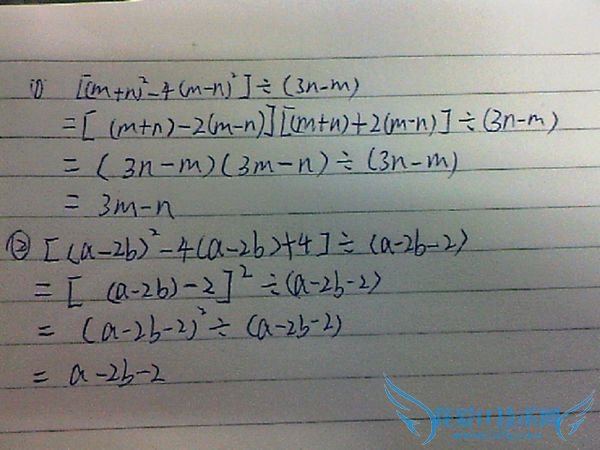 (1) [(m+n)²-4(m-n)²]÷(3n-m)
=[(m+n)-2(m-n)][(m+n)+2(m-n)]÷(3n-m)
=(3n-m)(3m-n)÷(3n-m)
=3m-n
② [(a-2b)²-4(a-2b)+4]÷(a-2b-2)
=[(a-2b)-2]²÷(a-2b-2)
=(a-2b-2)²÷(a-2b-2)
=a-2b-2